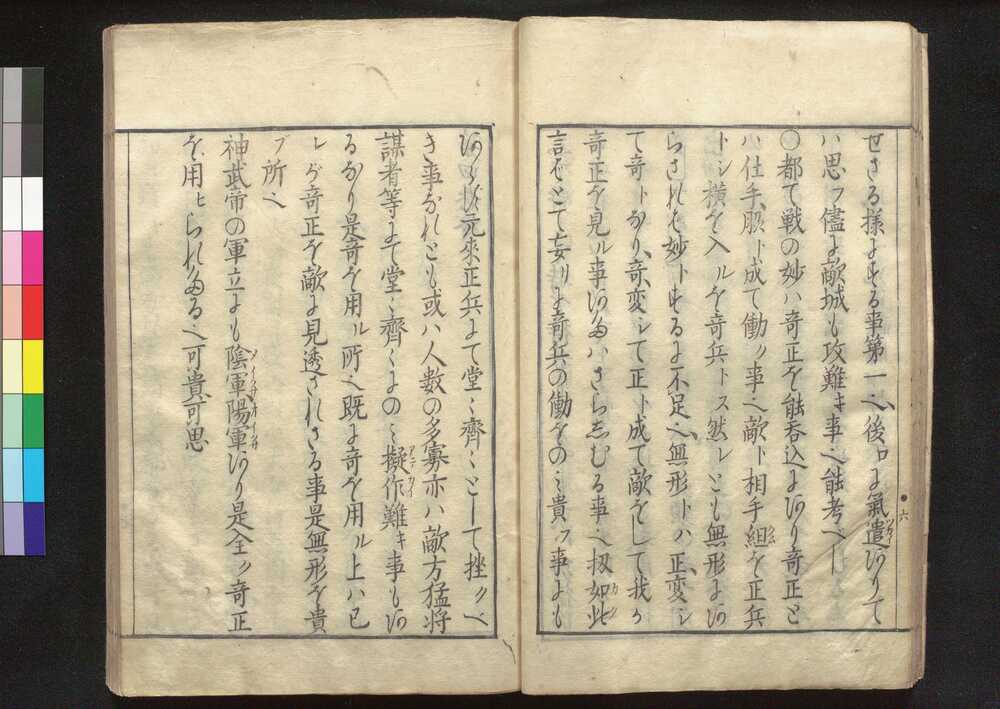 せざる様にする事第一也、後口に氣遣ありて
ハ思フ儘に敵城も攻難キ事也能考べし
〇都て戦の妙ハ奇正を能呑込にあり奇正と
ハ仕手、脇ト成て働ク事也敵ト相手組を正兵
トシ横を入ルを奇兵トス然レとも無形にあ
らされは妙トするに不足也、無形トハ正、変シ
て奇トなり、奇、変シて正ト成て敵をして我カ
奇正を見ル事あたハさらしむる事也扨如此
言はとて妄リに奇兵の働をのミ貴フ事にも
あらす元来正兵にて堂〻齊〻として挫クべ
き事なれとも或ハ人数の多寡亦ハ敵方猛将
謀者等にて堂〻齊〻にのミ擬作難キ事もあ
るなり是奇を用ル所也既に奇を用ル上ハ己
レが奇正を敵に見透されさる事是無形を貴
ブ所也
神武帝の軍立にも陰軍陽軍あり是全ク奇正
を用ヒられたる也可貴可思
六